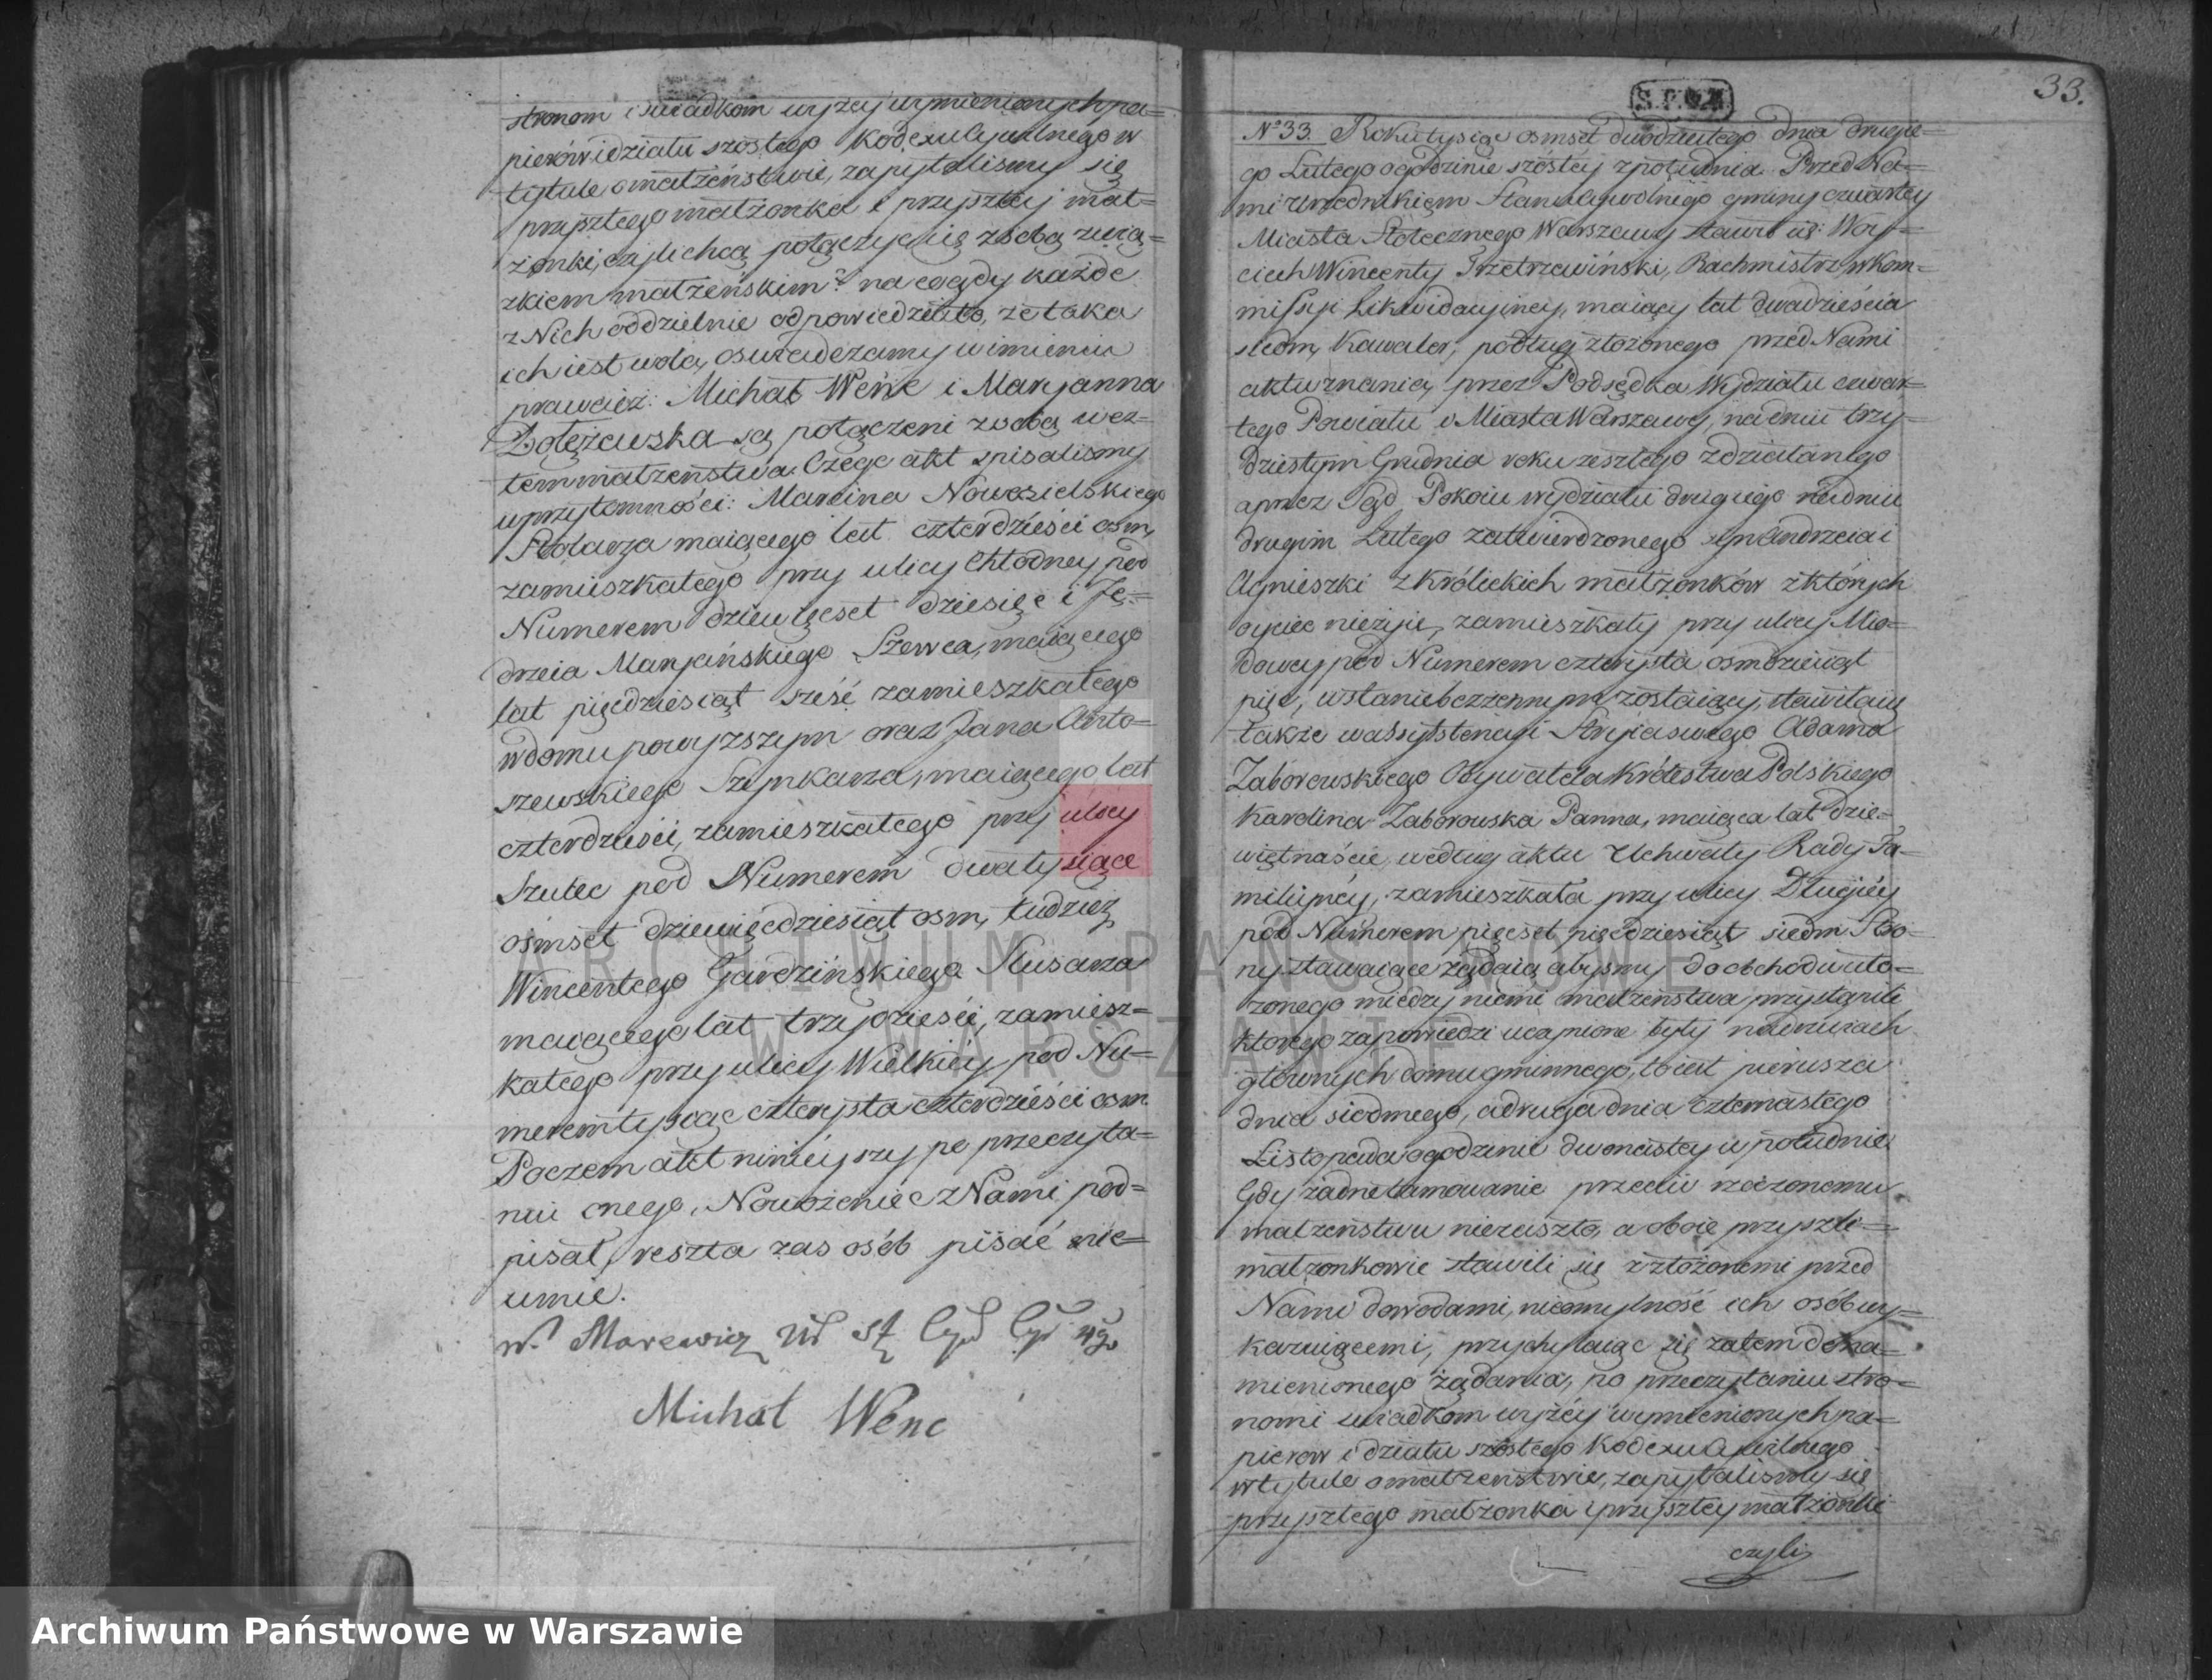 stronom i świadkom wyżej wymienionych pa=
pierów i działu szóstego Kodexu Cywilnego w
tytule o małżeństwie, zapytaliśmy się
przyszłego małżonka i przyszłej mał=
żonki, czyli chcą połączyć się z sobą zwią=
zkiem małżeńskim? na co gdy każde
z Nich oddzielnie odpowiedziało, że taka
ich iest wola, oświadczamy w imieniu
prawa iż: Michał Wenc i Maryanna
są połączeni z sobą węz=
łem małżeństwa. Czego akt spisaliśmy
w przytomności: Marcina Nowosielskiego
Stolarza maiącego lat czterdzieści ośm,
zamieszkałego przy ulicy Chłodney pod
Numerem dziewięćset dziesięć i Ję=
drzeia Maryańskiego Szewca, maiącego
lat pięćdziesiąt sześć zamieszkałego
w domu powyższym oraz Jana Arto=
szewskiego Szynkarza, maiącego lat
czterdzieści, zamieszkałego przy ulicy
Szulec pod Numerem dwa tysiące
ośmset dziewięćdziesiąt ośm, tudzież
Wincentego Gardzińskiego Slusarza
maiącego lat trzydzieści, zamiesz=
kałego przy ulicy Wielkiéy pod Nu=
merem tysiąc czterysta czterdzieści ośm
Poczem akt ninieyszy po przeczyta=
niu onego, Nowożeniec z Nami pod=
pisał, reszta zaś osób pisać nie=
umie.
W. Marewicz Ur St Cyw
Michał Wenc
33.
N° 33. Roku tysiąc ośmset dwudziestego dnia drugie=
go Lutego o godzinie szóstey z południa. Przed Na=
mi Urzędnikiem Stanu Cywilnego gminy czwartey
Miasta Stołecznego Warszawy stawił się: Woy=
ciech Wincenty Trzetrzewiński, Rachmistrz w Kom=
missyi Likwidacyiney, maiący lat dwadzieścia
siedm, Kawaler, podług złożonego przed Nami
aktu znania, przez Podsędka Wydziału czwar=
tego Powiatu i Miasta Warszawy, na dniu trzy=
dziestym Grudnia roku zeszłego zdziałanego
a przez Sąd Pokoiu wydziału drugiego na dniu
drugim Lutego zatwierdzonego syn Andrzeia i
Agnieszki z Królickich małżonków z których
oyciec nieżyie, zamieszkały przy ulicy Mio=
dowey pod Numerem czterysta ośmdziesiąt
pięć, w stanie bezżennym zostaiący, stawiła się
także w assystencyi Stryia swego Adama
Zaborowskiego Obywatela Królestwa Polskiego
Karolina Zaborowska Panna, maiąca lat dzie=
więtnaście, według aktu Uchwały Rady Fa=
miliynéy, zamieszkała przy ulicy Długiéy
pod Numerem pięćset pięćdziesiąt siedm Stro=
ny stawaiące żądaią abyśmy do obchodu uło=
żonego między niemi małżeństwa przystąpili
którego zapowiedzi uczynione były na drzwiach
głównych domu gminnego, to iest pierwsza
dnia siódmego, a druga dnia czternastego
Listopada o godzinie dwunastey w południe
Gdy żadne tamowanie przeciw rzeczonemu
małżeństwu niezaszło, a oboie przyszli=
małżonkowie stawili się z złożonemi przed
Nami dowodami, nieomylność ich osób wy=
kazuiącemi, przychylaiąc się zatem do na=
mienionego żądania, po przeczytaniu stro=
nom i świadkom wyżéy wymienionych pa=
pierów i działu szóstego Kodexu Cywilnego
w tytule o małżeństwie, zapytaliśmy się
przyszłego małżonka i przyszłey małżonki
czyli
ARCHIWUM PAŃSTWOWE
W WARSZAWIE
Archiwum Państwowe w Warszawie